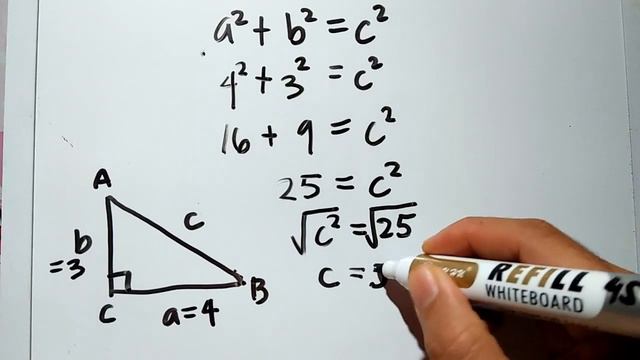 a² + b² = c²
4² + 3² = c²
16 + 9 = c²
25 = c²
√c² = √25
c = 5
A
b
= 3
c
C
a = 4
B
REFILL
WHITEBOARD